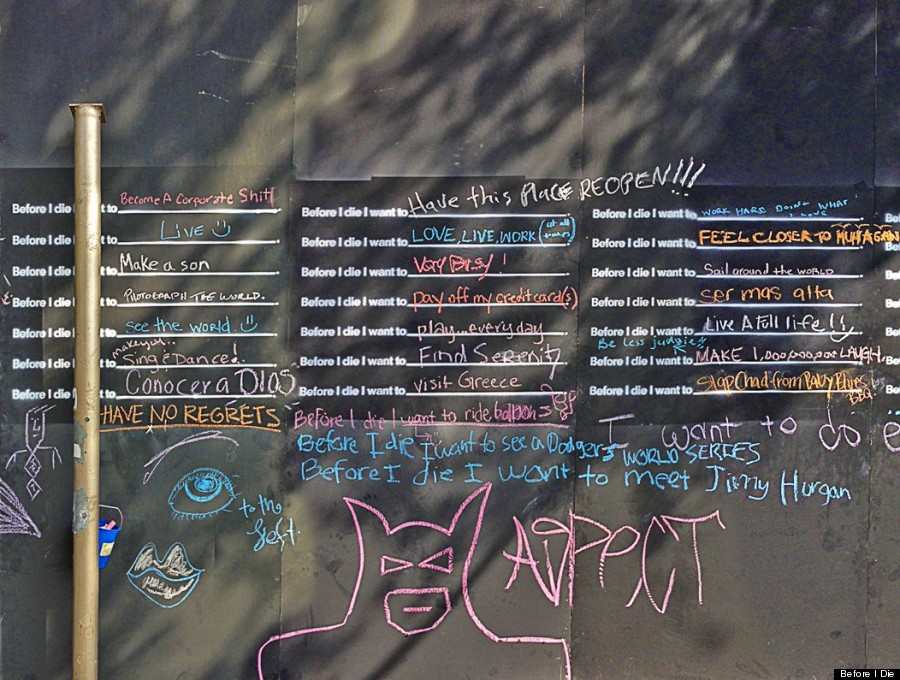 Before I die I want to Become A Corporate Shill
Before I die I want to Live
Before I die I want to Make a son
Before I die I want to PHOTOGRAPH THE WORLD.
Before I die I want to see the world.
Before I die I want to Sing & Dance!
Before I die I want to Conocer a DIOS
HAVE NO REGRETS
to the
Before I die I want to Have this PlACE REOPEN!!!
Before I die I want to LOVE, LIVE, WORK (at all times)
Before I die I want to Very Busy!
Before I die I want to pay off my credit card(s)
Before I die I want to play...everyday
Before I die I want to Find Serenity
Before I die I want to visit Greece
Before I die I want to ride balloons
Before I die I want to see a Dodgers WORLD SERIES
Before I die I want to meet Jimy Hurgan
Before I die I want to WORK HARD DOING WHAT I LOVE
Before I die I want to FEEL CLOSER TO
Before I die I want to Sail around the WORLD
Before I die I want to ser mas alta
Before I die I want to Live A Full life!
Be less judgie!!
Before I die I want to MAKE 1,000,000,000 LAUGH.
Before I die I want to Slap Chad from Baby Blues BBQ
I want to do
Before I Die